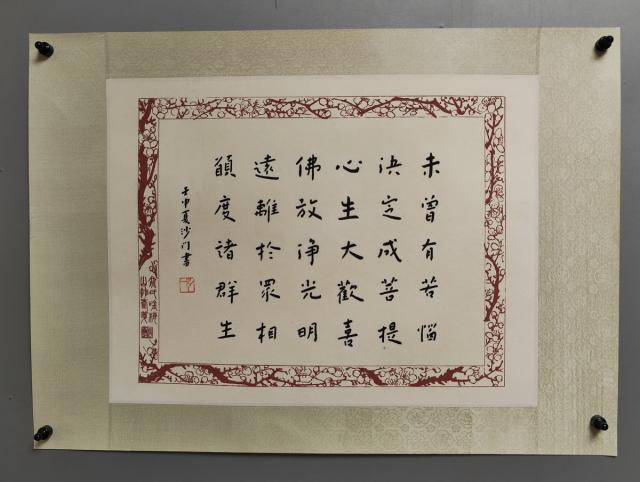 未曾有苦惱
決定成菩提
心生大歡喜
佛放淨光明
遠離於眾相
願度諸群生
壬申夏沙門書